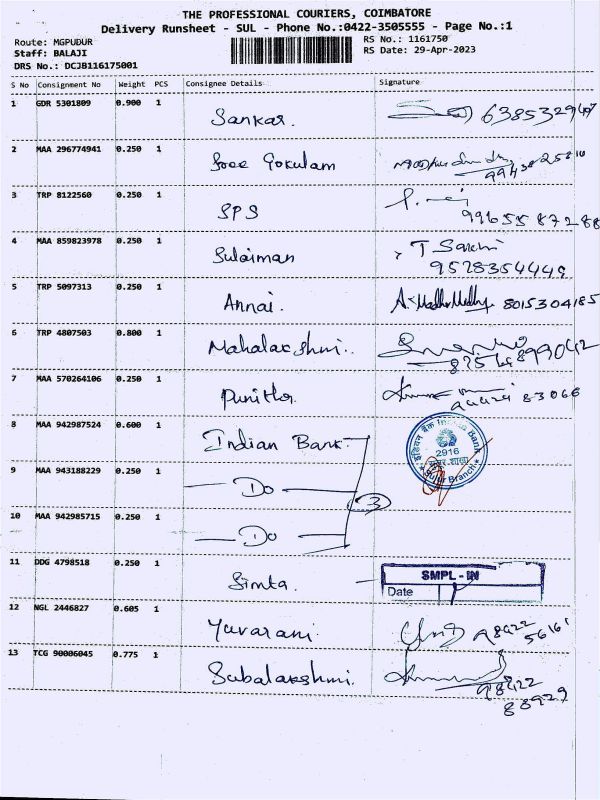 THE PROFESSIONAL COURIERS, COIMBATORE
Delivery Runsheet - SUL - Phone No.:0422-3505555 - Page No.:1
Route: MGPUDUR
RS No.: 1161750
Staff: BALAJI
RS Date: 29-Apr-2023
DRS No.: DCJB116175001
S No Consignment No Weight PCS Consignee Details Signature
1 GDR 5301809 0.900 1 Sankar. 6385329
2 MAA 296774941 0.250 1 Sree Gokulam
3 TRP 8122560 0.250 1 SPS
9965587288
4 MAA 859823978 0.250 1 Sulaiman T Sakthi
9528354449
5 TRP 5097313 0.250 1 Annai. 8015304185
6 TRP 4807503 0.800 1 Mahalakshmi.
7 MAA 570264106 0.250 1 Punitha 83066
8 MAA 942987524 0.600 1 Indian Bank
इंडियन बैंक Indian Bank
2916
Sulur Branch
9 MAA 943188229 0.250 1 — Do — 3
10 MAA 942985715 0.250 1 — Do —
11 DDG 4798518 0.250 1 Simta. SMPL - IN
Date
12 NGL 2446827 0.605 1 Yuvarani 98422
56161
13 TCG 90006045 0.775 1 Subalakshmi. 98422
88929